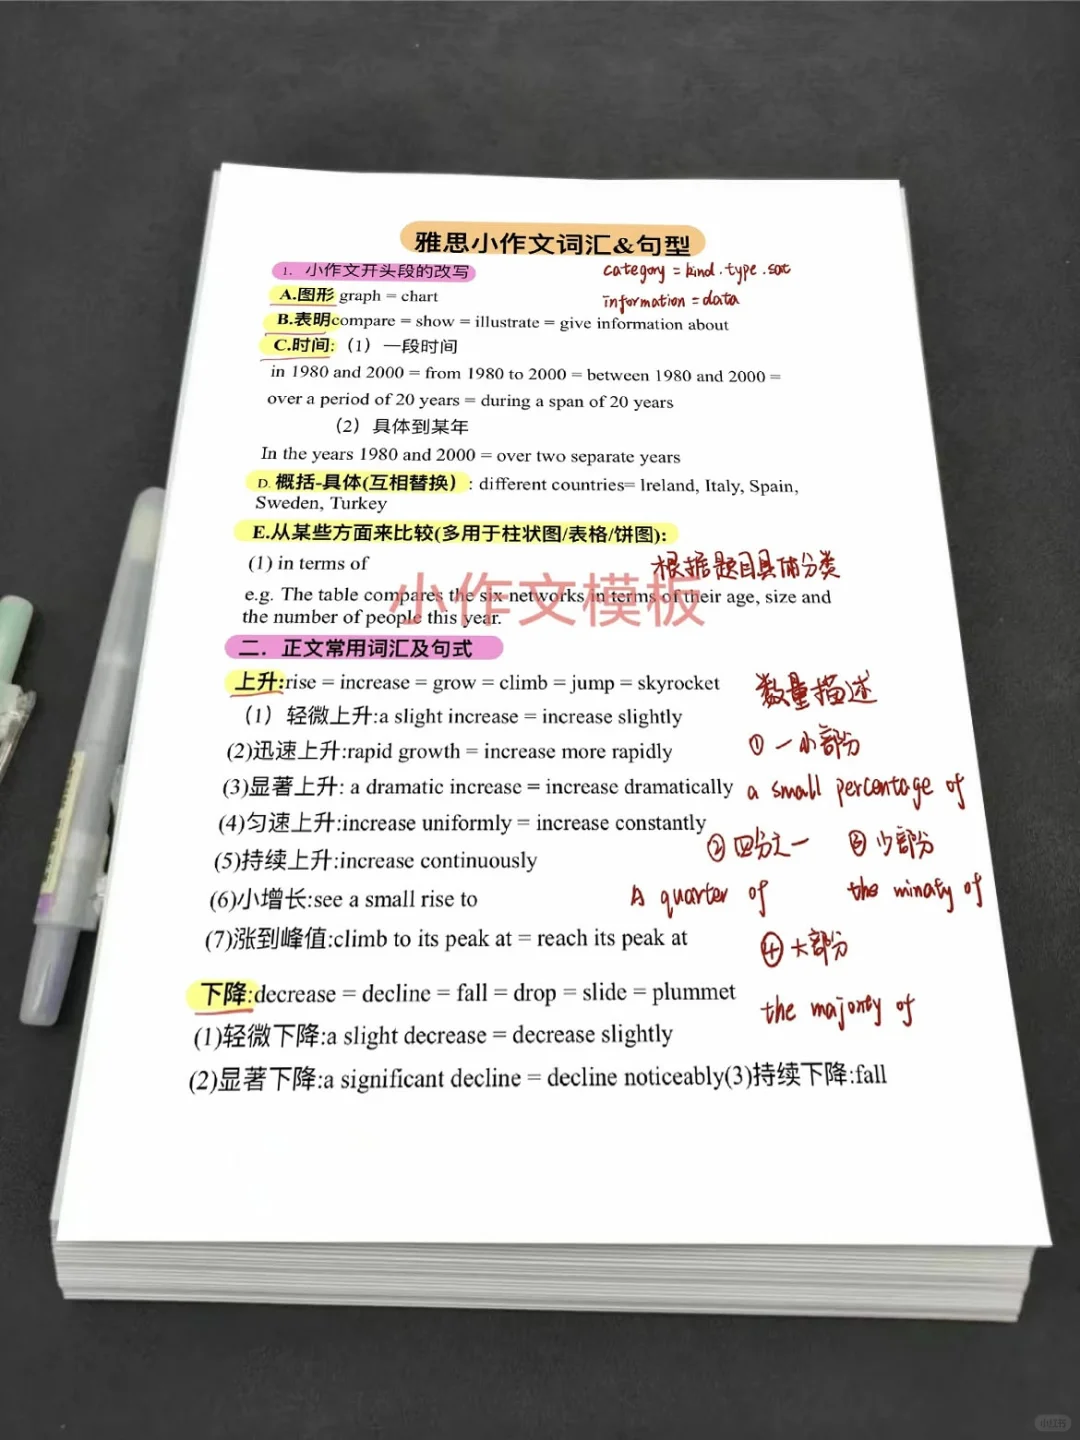 雅思小作文词汇&句型
1. 小作文开头段的改写
category = kind.type.sort
A.图形 graph = chart
information = data
B.表明compare = show = illustrate = give information about
C.时间:（1）一段时间
in 1980 and 2000 = from 1980 to 2000 = between 1980 and 2000 =
over a period of 20 years = during a span of 20 years
（2）具体到某年
In the years 1980 and 2000 = over two separate years
D. 概括-具体(互相替换）: different countries= Ireland, Italy, Spain,
Sweden, Turkey
E.从某些方面来比较(多用于柱状图/表格/饼图):
(1) in terms of
根据题目具体分类
小作文模板
e.g. The table compares the six networks in terms of their age, size and
the number of people this year.
二. 正文常用词汇及句式
上升:rise = increase = grow = climb = jump = skyrocket
数量描述
（1）轻微上升:a slight increase = increase slightly
① 一小部分
(2)迅速上升:rapid growth = increase more rapidly
(3)显著上升: a dramatic increase = increase dramatically
a small percentage of
(4)匀速上升:increase uniformly = increase constantly
② 四分之一 ③ 少部分
(5)持续上升:increase continuously
(6)小增长:see a small rise to
A quarter of the minaty of
(7)涨到峰值:climb to its peak at = reach its peak at
④ 大部分
下降:decrease = decline = fall = drop = slide = plummet
the majority of
(1)轻微下降:a slight decrease = decrease slightly
(2)显著下降:a significant decline = decline noticeably(3)持续下降:fall
小红书